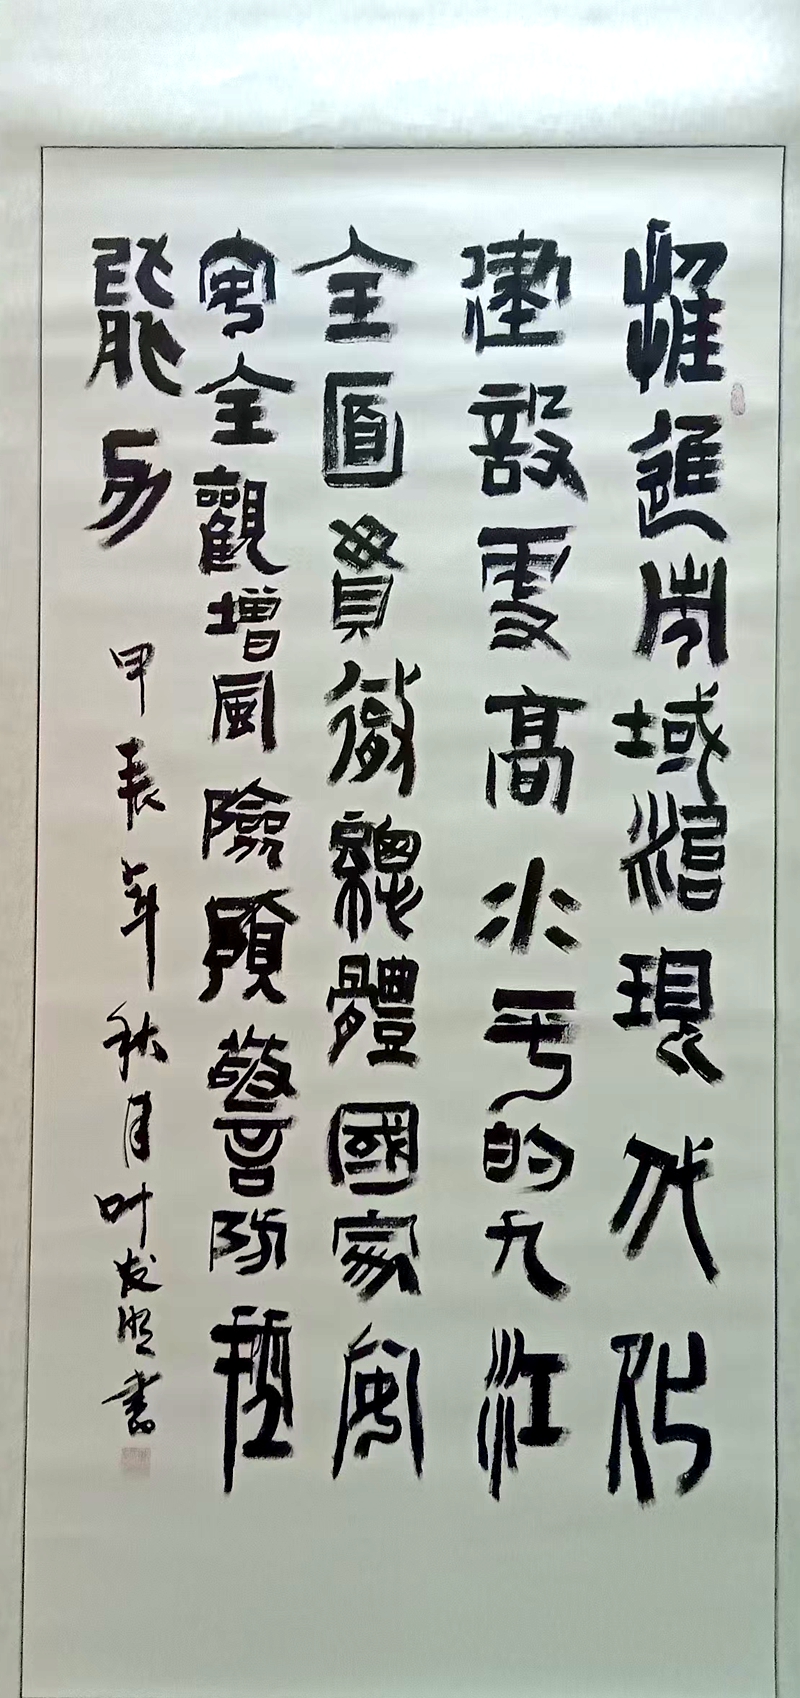 推進市域治現代化
建設更高水平的九江
全面貫徹總體國家安
安全觀增風險預警防控
能力
甲辰年秋月叶发明書